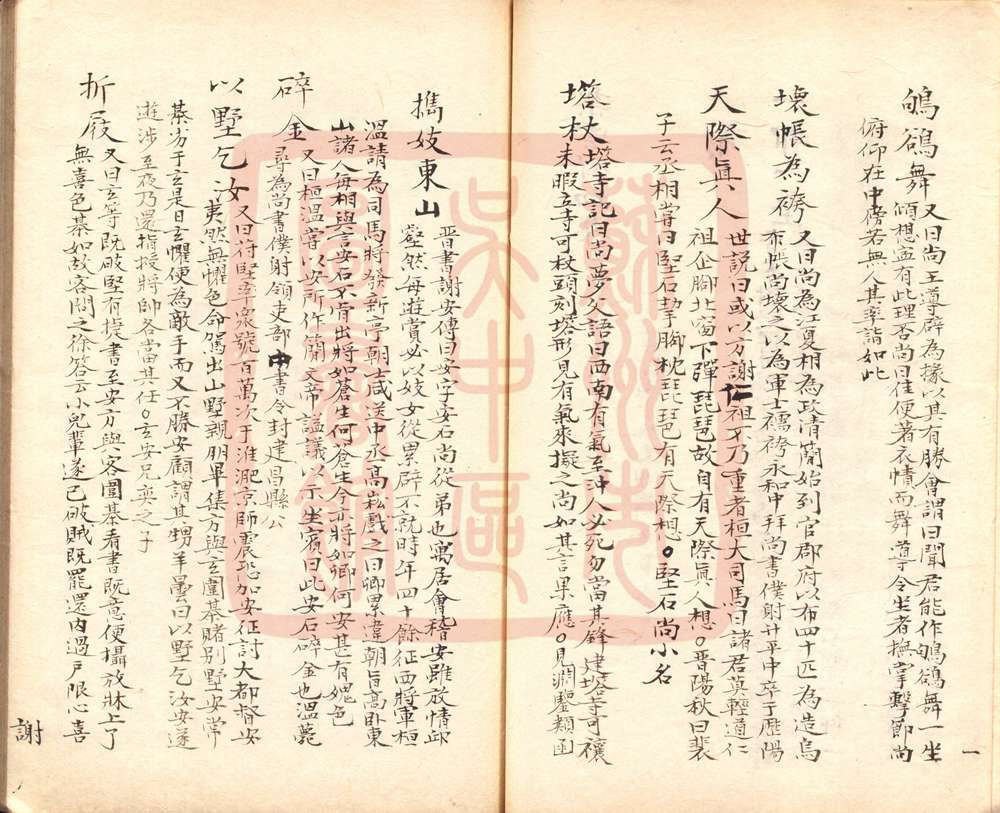 鴝鵒舞又曰尚王導辟為掾以其有勝會謂曰聞君能作鴝鵒舞一坐
傾想寧有此理否尚曰佳便著衣幘而舞導令坐者撫掌擊節尚
俯仰在中傍若無人其率詣如此
壞帳為袴又曰尚為江夏相為政清簡始到官郡府以布四十匹為造烏
布帳尚壞之以為軍士襦袴永和中拜尚書僕射升平中卒于歷陽
天際真人世說曰或以方謝仁祖不乃重者桓大司馬曰諸君莫輕道仁
祖企腳北窗下彈琵琶故自有天際真人想○晉陽秋曰裴
子云丞相嘗曰堅石挈腳枕琵琶有天際想○堅石尚小名
塔杖塔寺記曰尚夢父語曰西南有氣至沖人必死勿當其鋒建塔寺可禳
未暇立寺可杖頭刻塔形見有氣來擬之尚如其言果應○見淵鑒類函
攜妓東山晉書謝安傳曰安字安石尚從弟也寓居會稽安雖放情邱
壑然每遊賞必以妓女從累辟不就時年四十餘征西將軍桓
溫請為司馬時發新亭朝士咸送中丞高崧戲之曰卿累違朝旨高卧東
山諸人每相與言安石不肯出將如蒼生何蒼生今亦將如卿何安甚有媿色
碎金又曰桓溫嘗以安所作簡文帝謚議以示坐賓曰此安石碎金也溫薨
尋為尚書僕射領吏部中書令封建昌縣公
以墅乞汝又曰苻堅率眾號百萬次于淮淝京師震恐加安征討大都督安
夷然無懼色命駕出山墅親朋畢集方與玄圍棊賭別墅安常
棊劣于玄是日玄懼便為敵手而又不勝安顧謂其甥羊曇曰以墅乞汝安遂
遊涉至夜乃還指授將帥各當其任○玄安兄奕之子
折屐又曰玄等既破堅有捷書至安方與客圍棊看書既意便攝放牀上了
無喜色棊如故客問之徐答云小兒輩遂已破賊既罷還內過戶限心喜
謝
一